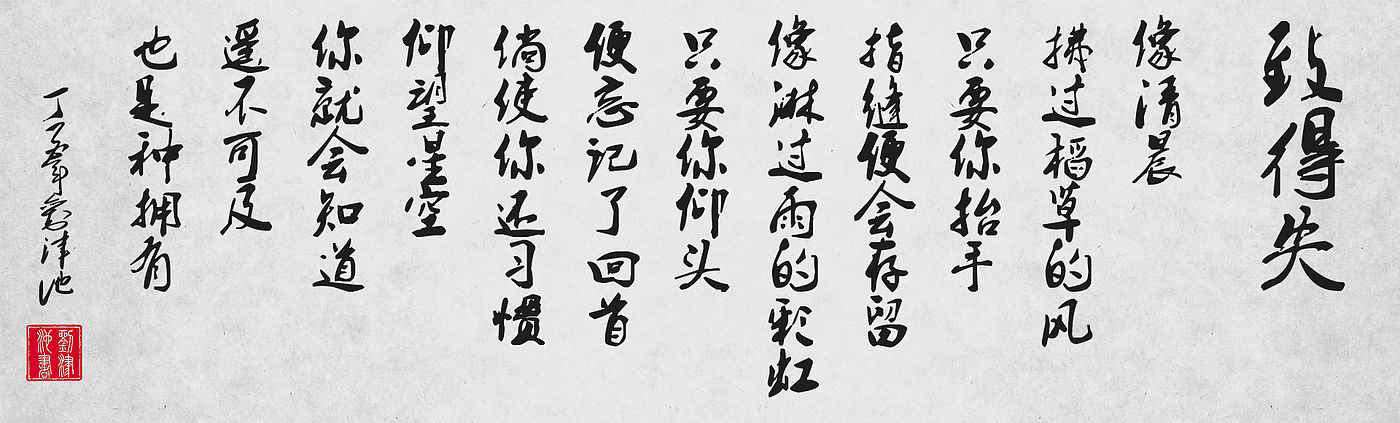 致得失
像清晨
拂过稻草的风
只要你抬手
指缝便会存留
像淋过雨的彩虹
只要你仰头
便忘记了回首
倘使你还习惯
仰望星空
你就会知道
遥不可及
也是种拥有
丁酉年 刘津池
劉津池書